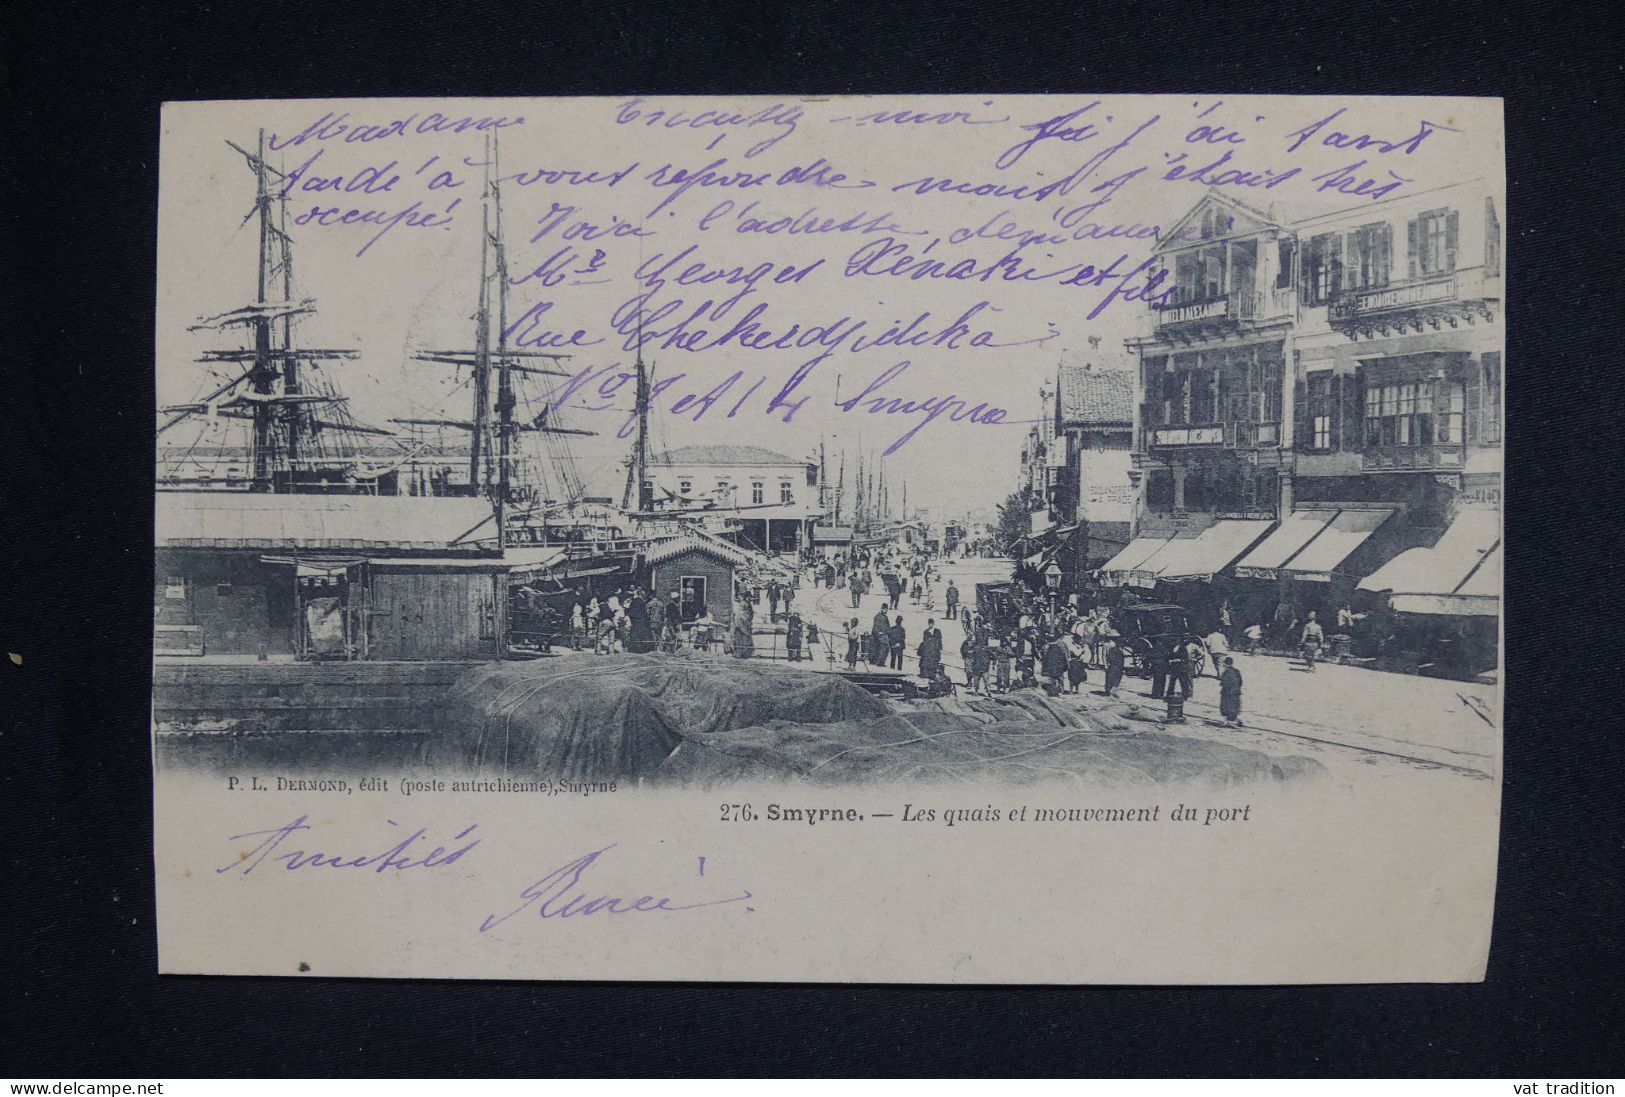 Madame Excusez-moi si j'ai tant
tardé à vous répondre mais j'étais très
occupé. Voici l'adresse demandée
Mr Georges Xénaki et fils
Rue Tchekerdjidika
No 7 et 14 Smyrne
P. L. DERMOND, édit (poste autrichienne),Smyrne
276. Smyrne. — Les quais et mouvement du port
Amitiés
René
www.delcampe.net
vat tradition